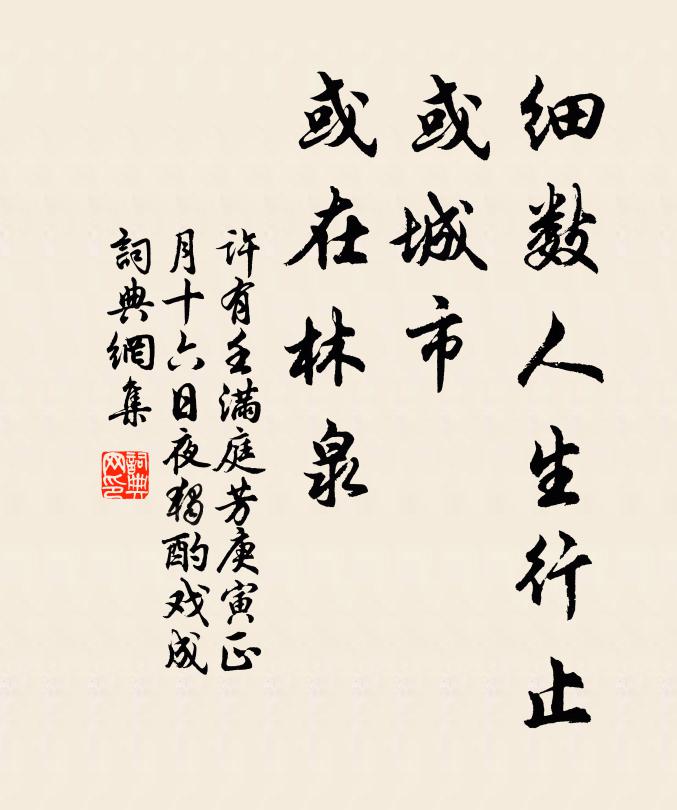 细数人生行止
或城市
或在林泉
许有壬满庭芳庚寅正
月十六日夜独酌戏成
詞典網集
詞典
网印